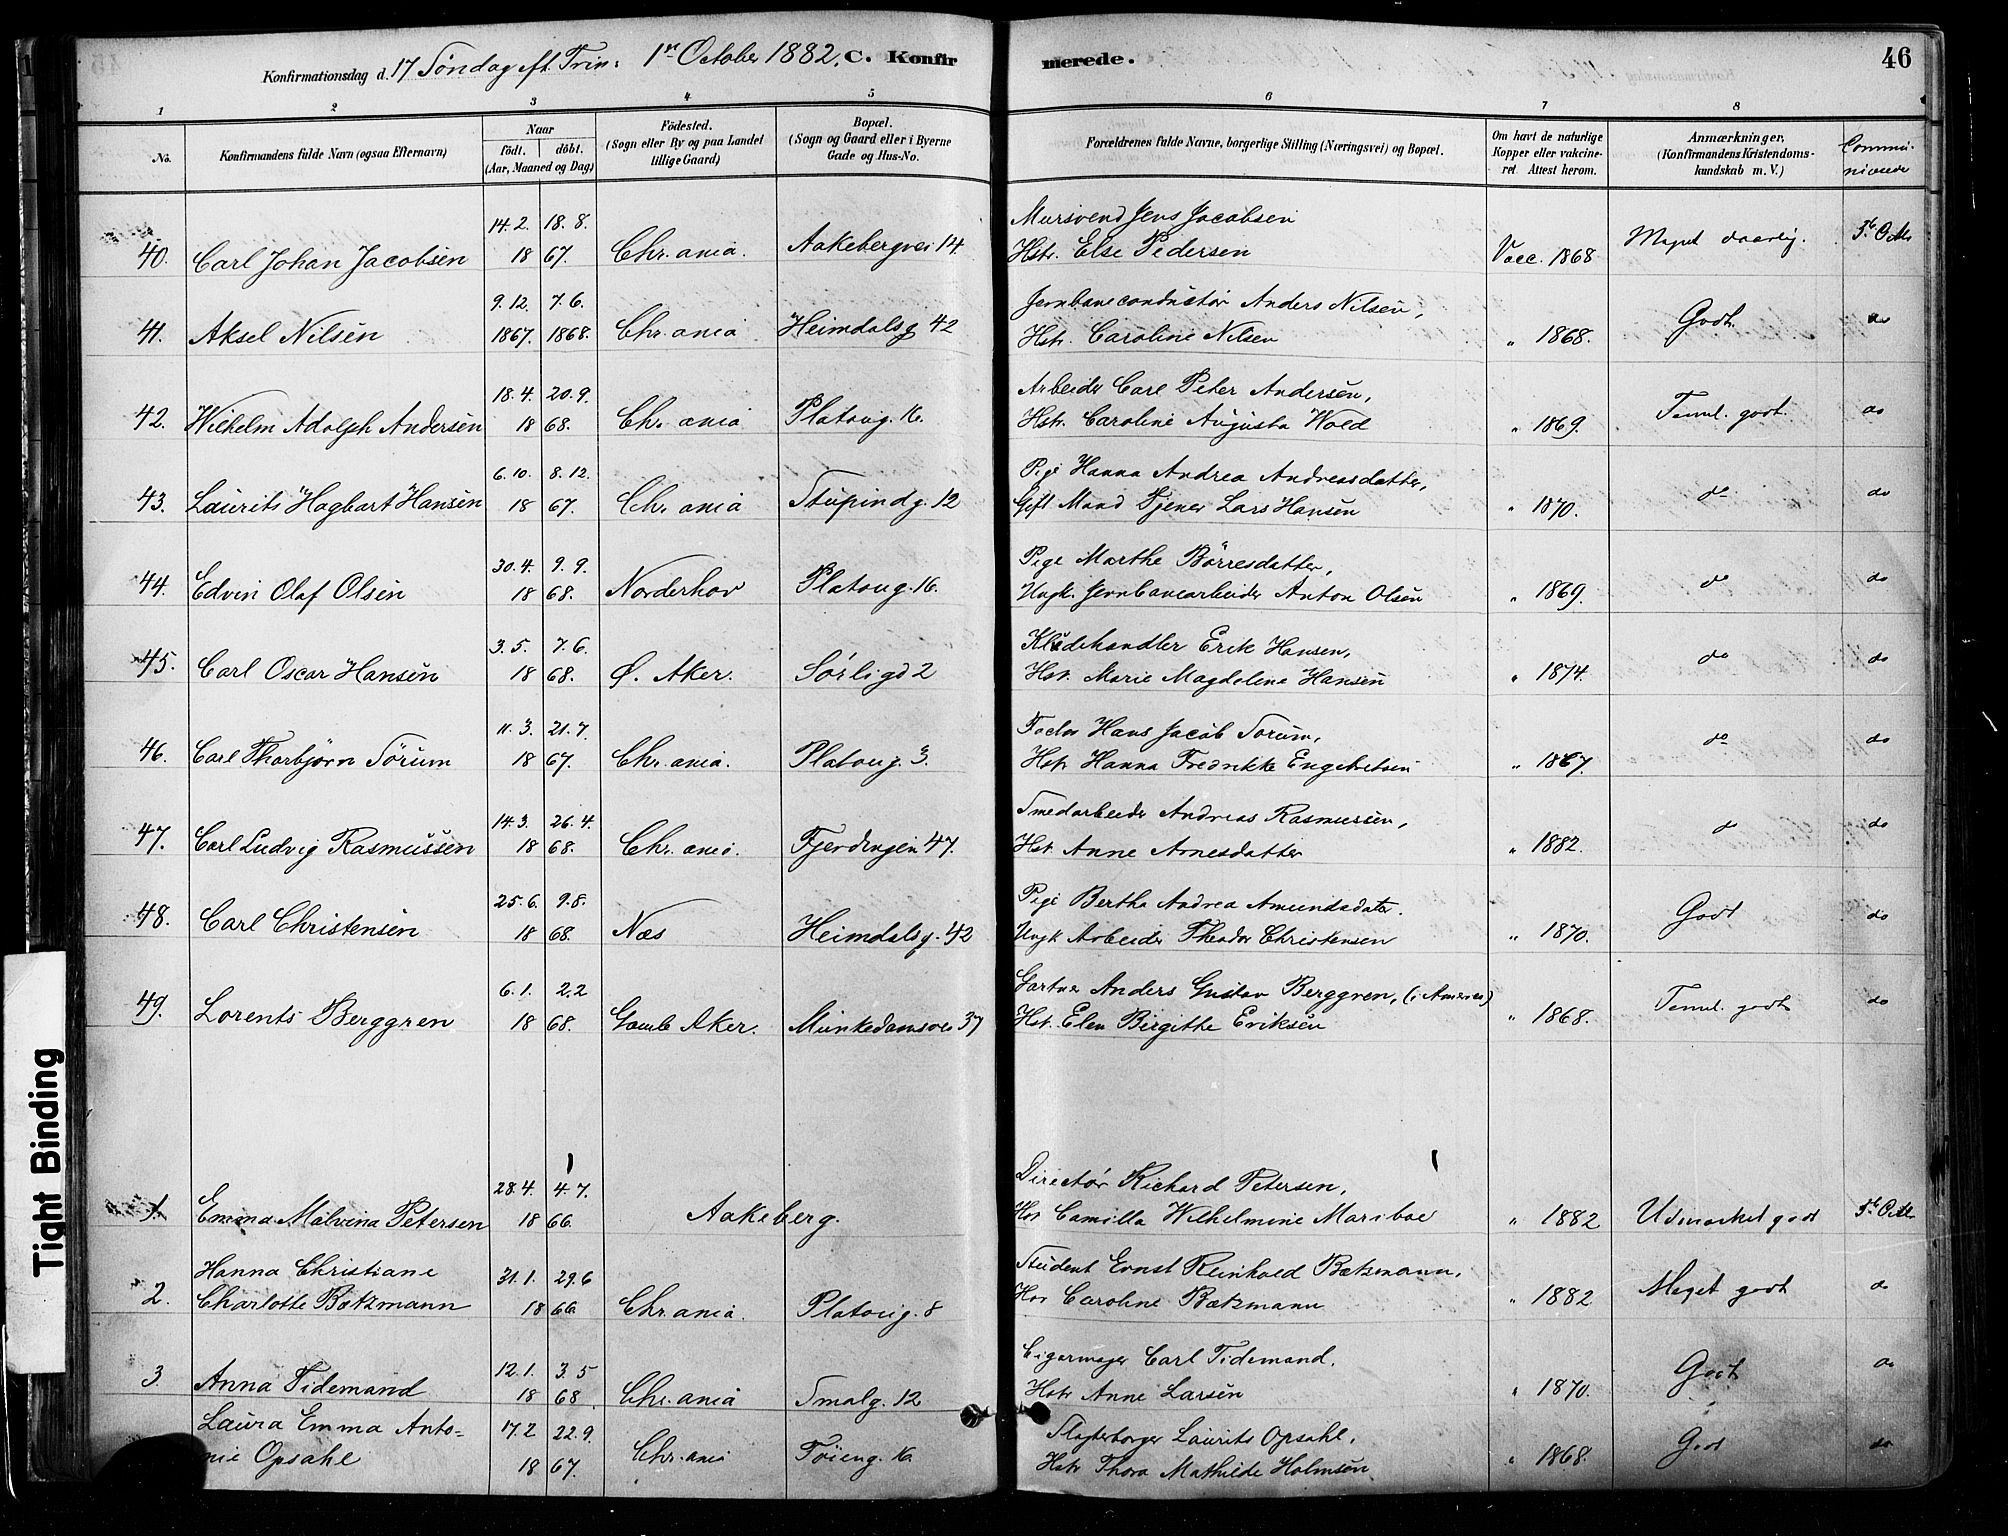 Konfirmationsdag d. 17 Søndag eft. Trin: 1ste October 1882. C. Konfirmerede. 46
1 2 3 4 5 6 7 8
No. Konfirmandens fulde Navn (ogsaa Efternavn) Naar født. døbt. (Aar, Maaned og Dag) Födested. (Sogn eller By og paa Landet tillige Gaard) Bopæl. (Sogn og Gaard eller i Byerne Gade og Hus-No. Forældrenes fulde Navne, borgerlige Stilling (Næringsvei) og Bopæl. Om havt de naturlige Kopper eller vakcineret. Attest herom. Anmærkninger, (Konfirmandens Kristendomskundskab m. V.) Communicerede
14.2. 18.8. Mursvend Jens Jacobsen
40. Carl Johan Jacobsen 18 67. Chr.ania. Aakebergvei 14. Hstr. Else Pedersen Vacc. 1868 Meget daarlig. 5te Octbr
9.12. 7.6. Jernbaneconductør Anders Nilsen,
41. Aksel Nilsen 1867. 1868. Chr.ania Heimdalsg 42 Hstr. Caroline Nilsen " 1868. Godt. do
18.4. 20.9. Arbeider Carl Peter Andersen,
42. Wilhelm Adolph Andersen 18 68. Chr.ania Platoug. 16. Hstr. Caroline Augusta Wold " 1869. Teml. godt. do
6.10. 8.12. Pige Hanna Andrea Andreasdatter,
43. Laurits Hagbart Hansen 18 67. Chr.ania Stupindg. 12 Gift Mand Tjener Lars Hansen " 1870. do do
30.4. 9.9. Pige Marthe Börresdatter,
44. Edvin Olaf Olsen 18 68. Norderhov Platoug. 16. Ungk. Jernbanearbeider Anton Olsen " 1869. do do
3.5. 7.6. Kludehandler Erik Hansen,
45. Carl Oscar Hansen 18 68. Ø. Aker. Sörligd 2 Hst. Marie Magdalene Hansen " 1874. do do
11.3. 21.7. Hans Jacob Sorum,
46. Carl Thorbjørn Sörum 18 67. Chr.ania. Platoug. 3. Hstr Hanna Fredrikke Engebretsen " 1867. do do
14.3. 26.4. Smedarbeider Andreas Rasmussen,
47. Carl Ludvig Rasmussen 18 68. Chr.ania. Fjerdingen 47. Hst. Anne Arnesdatter " 1882. do do
25.6. 9.8. Pige Bertha Andrea Amundsdatr.
48. Carl Christensen 18 68. Næs Heimdalsg. 42 Ungk Arbeider Theodor Christensen " 1870. Godt do
6.1. 2.2 Gartner Anders Gustav Berggren,
49. Lorents Berggren 18 68. Gamle Aker. Munkedamsvei 37 Hst. Elen Birgithe Eriksen " 1868. Teml. godt do
28.4. 4.7. Directör Richard Petersen,
1. Emma Malvina Petersen 18 66. Aakeberg. Hor Camilla Wilhelmine Mariboe " 1882 Udmærket godt 5te Octbr
Hanna Christiane 31.1. 29.6 Student Ernst Reinhold Bætzmann,
2. Charlotte Bætzmann 18 66. Chr.ania. Platoug. 8 Hor Caroline Bætzmann " 1882 Meget godt do
12.1. 3.5 Cigarmager Carl Tidemand.
3. Anna Tidemand 18 68. Chr.ania Smalg. 12 Hstr Anne Larsen " 1870. Godt do
Laura Emma Anto= 17.2 22.9. Slagterborger Laurits Opsahl,
nie Opsahl 18 67. Chr.ania Töieng. 16. Hstr Thora Mathilde Holmsen " 1868. Godt do
Tight Binding